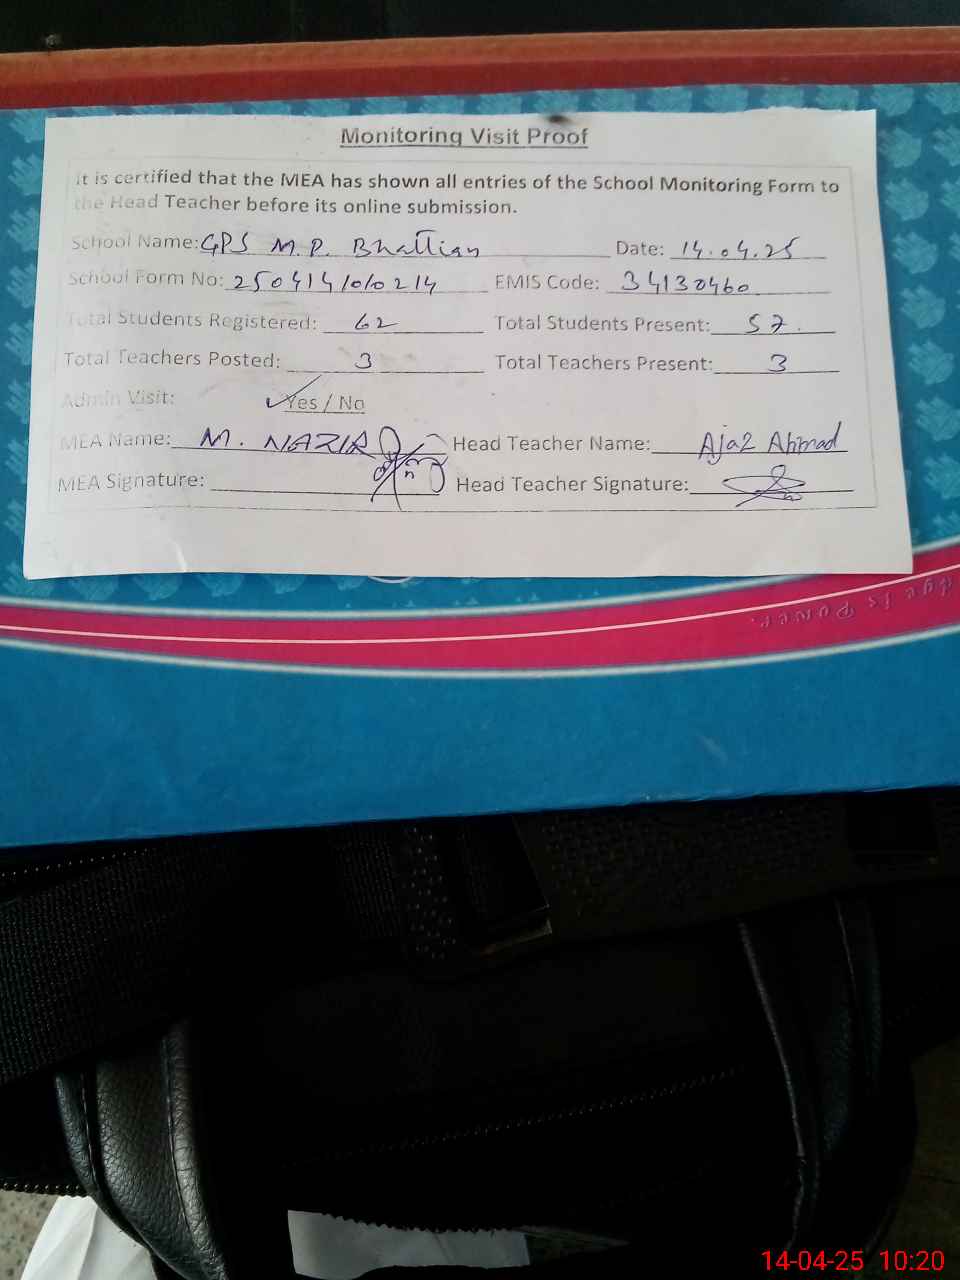 Monitoring Visit Proof
It is certified that the MEA has shown all entries of the School Monitoring Form to
the Head Teacher before its online submission.
School Name: GPS M.P. Bhattian Date: 14.04.25
School Form No: 250414101010214 EMIS Code: 34130460
Total Students Registered: 62 Total Students Present: 57.
Total Teachers Posted: 3 Total Teachers Present: 3
Admin Visit: ✓Yes / No
MEA Name: M. NAZIR Head Teacher Name: Ajaz Ahmad
MEA Signature: Head Teacher Signature:
dge is Power.
14-04-25 10:20